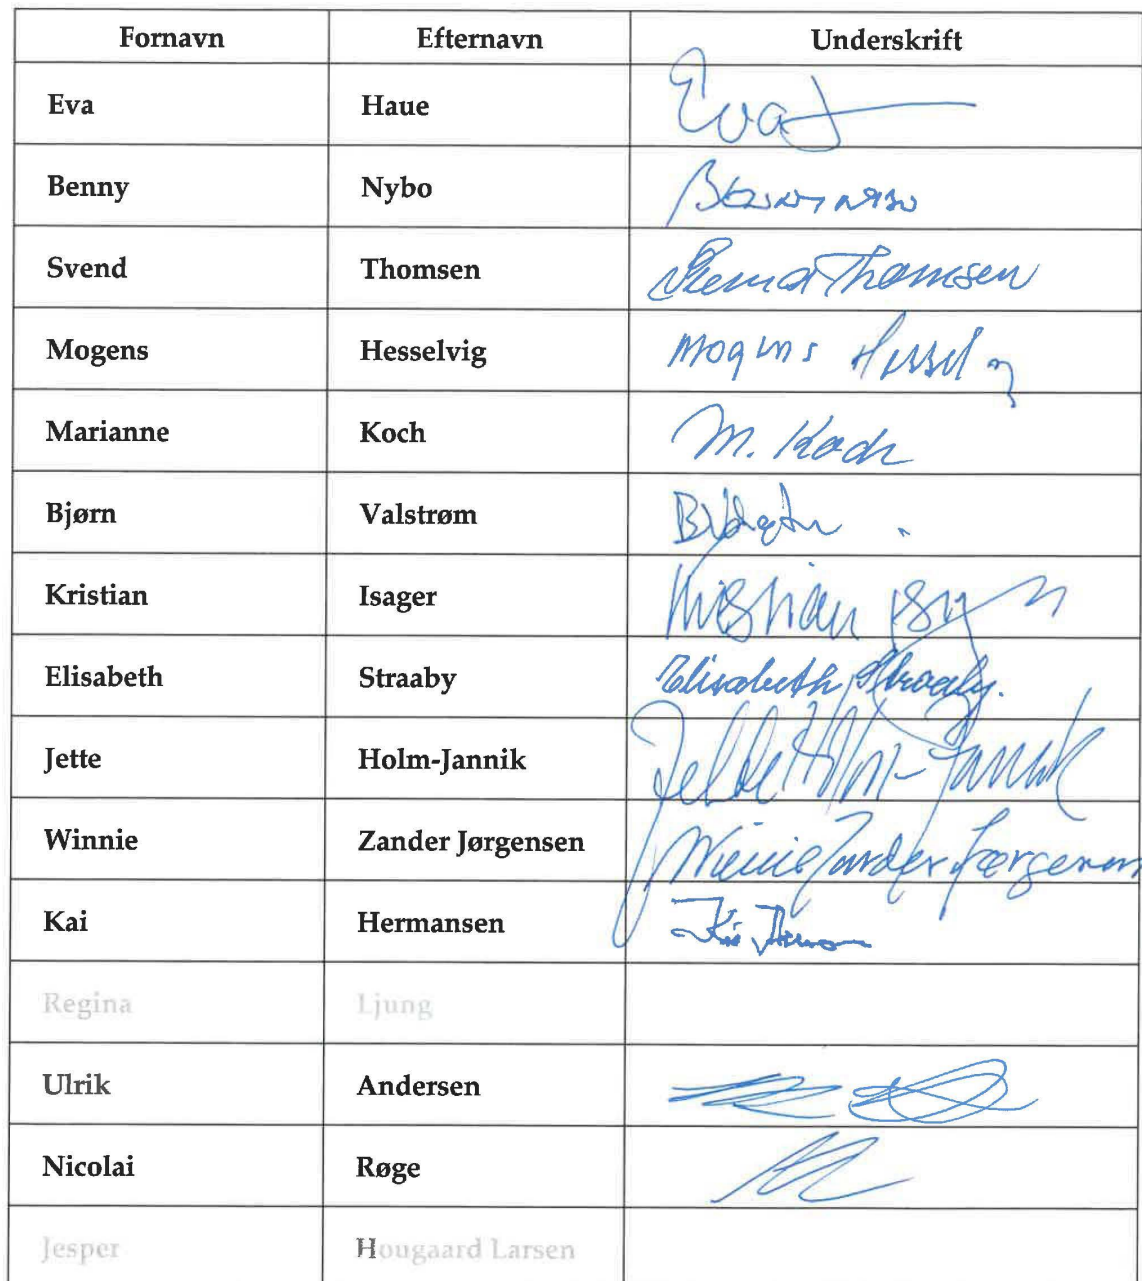 Fornavn Efternavn Underskrift
Eva Haue Eva
Benny Nybo
Svend Thomsen Svend Thomsen
Mogens Hesselvig Mogens
Marianne Koch M. Koch
Bjørn Valstrøm
Kristian Isager Kristian
Elisabeth Straaby Elisabeth Straaby.
Jette Holm-Jannik Jette Holm-Jannik
Winnie Zander Jørgensen Winnie Zander Jørgensen
Kai Hermansen
Regina Ljung
Ulrik Andersen
Nicolai Røge
Jesper Hougaard Larsen